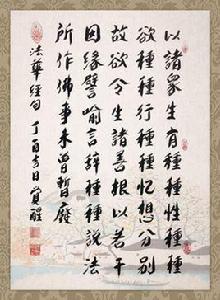 以諸眾生有種種性種種
欲種種行種種憶想分別
故欲令生諸善根以若干
因緣譬喻言辭種種說法
所作佛事未曾暫廢
法華經句 丁酉冬日 覺醒